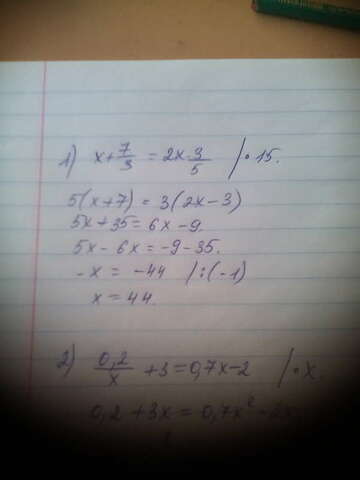 1) x+7/3 = 2x·3/5 /·15.
5(x+7) = 3(2x-3)
5x+35 = 6x-9.
5x-6x = -9-35.
-x = -44 /:(-1)
x = 44.
2) 0,2/x +3 = 0,7x-2 /·x.
0,2+3x = 0,7x²-2x